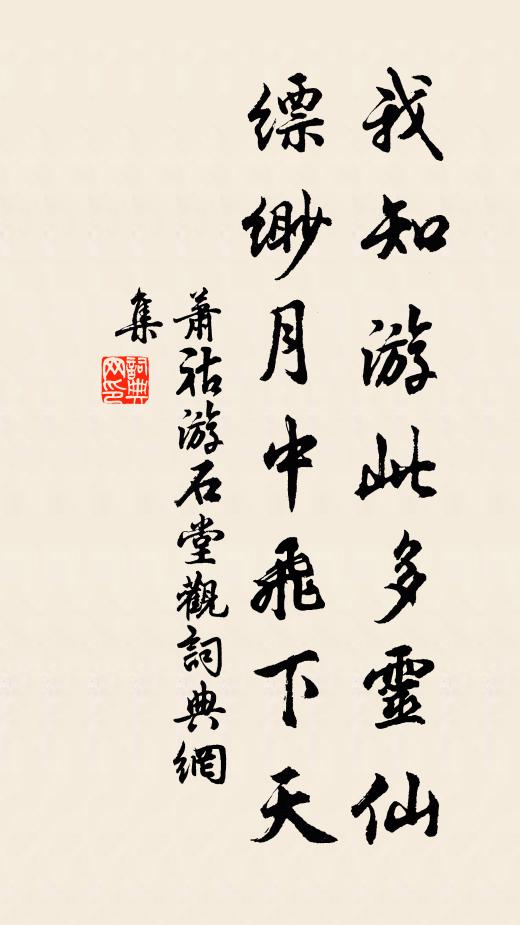 我知游此多靈仙
缥缈月中飛下天
蕭祜游石堂觀詞典網
集
詞典
网印